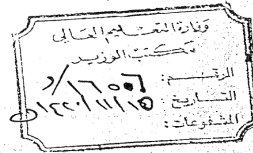 وزارة التعليم العالي
مكتب الوزير
الرقم: ١٦٥٥٦/و
التاريخ: ١٤٢٠/١١/١٥هـ
المشفوعات: